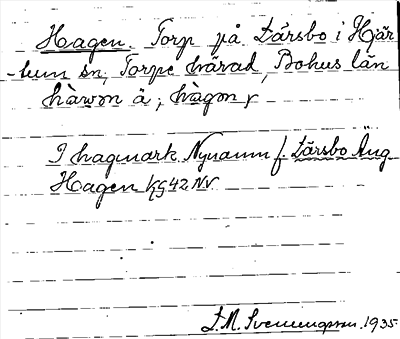 Hagen. Torp på Lårsbo i Hjär
-tum sn, Torpe härad, Bohus län
hàwon ä, hàgon,
I hagmark. Nynamn f Lårsbo Äng
Hagen kg 42 NV.
L.M. Svenungsson. 1935